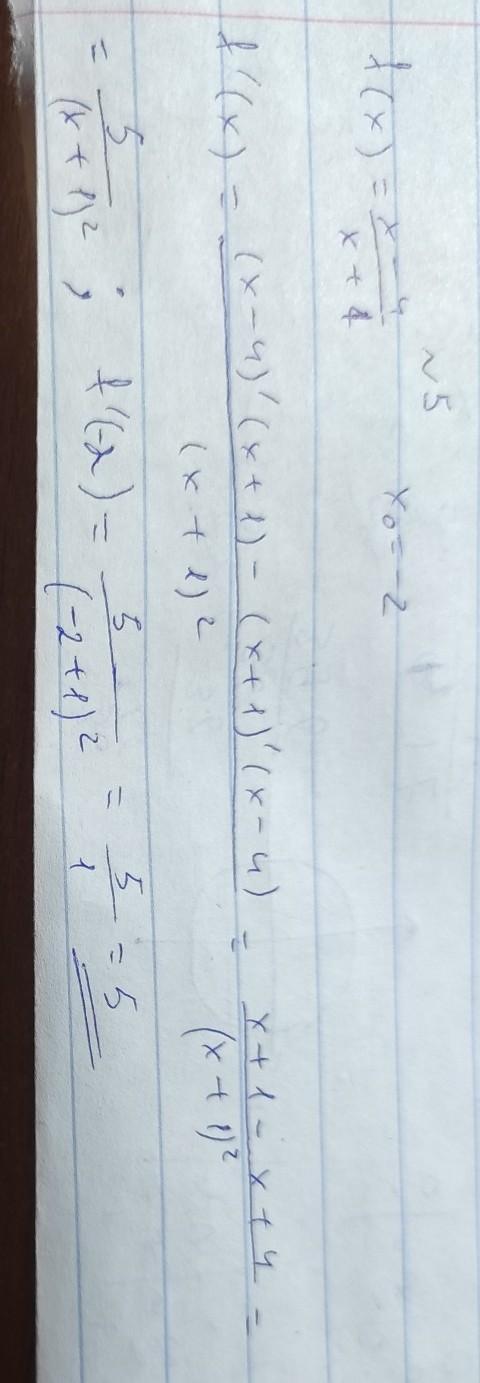 ~ 5
f(x) = (x - 4)/(x + 1) x₀ = -2
f'(x) = ((x - 4)'(x + 1) - (x + 1)'(x - 4))/(x + 1)² = (x + 1 - x + 4)/(x + 1)² =
= 5/(x + 1)² ; f'(-2) = 5/(-2 + 1)² = 5/1 = 5